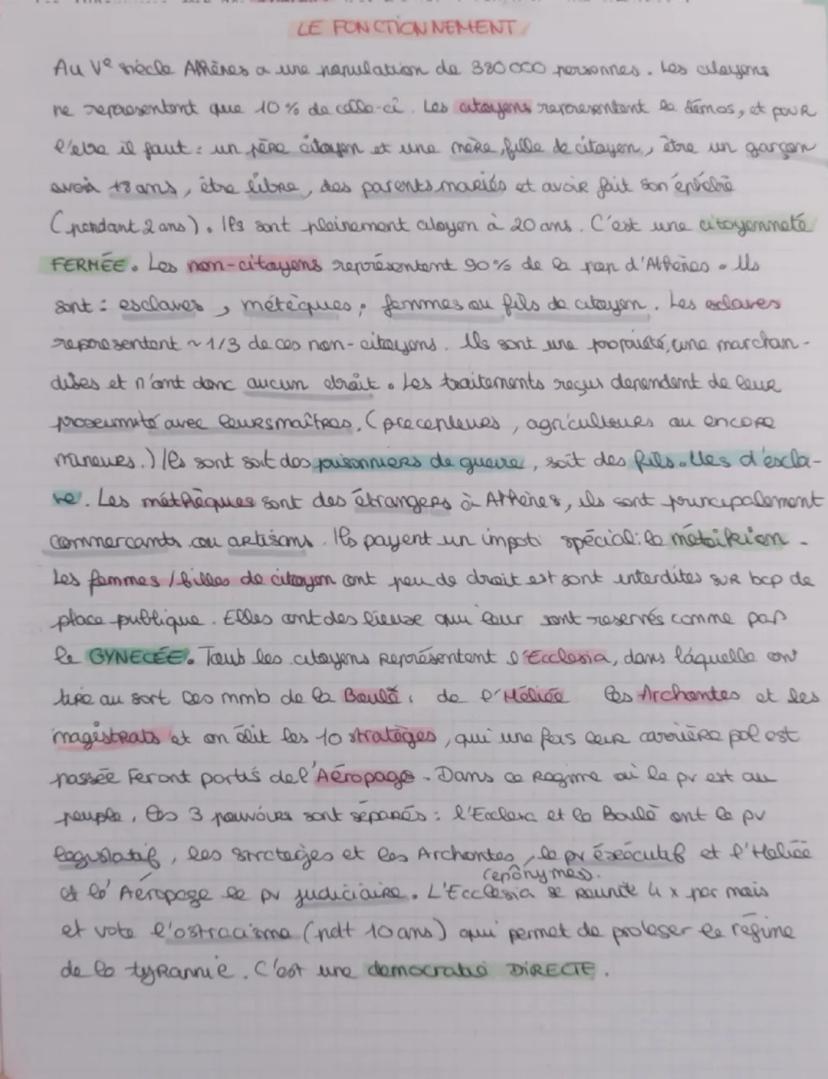 LE FONCTIONNEMENT
Au Ve siècle Athènes a une population de 380 000 personnes. Les citoyens
ne représentent que 10% de celle-ci. Les citoyens représentent le dêmos, et pour
l'être il faut : un père citoyen et une mère, fille de citoyen, être un garçon
avoir +18 ans, être libre, des parents mariés et avoir fait son éphébie
(pendant 2 ans). Ils sont pleinement citoyen à 20 ans. C'est une citoyenneté
FERMÉE. Les non-citoyens représentent 90% de la pop d'Athènes. Ils
sont : esclaves, métèques, femmes ou fils de citoyen. Les esclaves
représentent ~1/3 de ces non-citoyens. Ils sont une propriété, une marchan-
dises et n'ont donc aucun droit. Les traitements reçus dependent de leur
proximité avec leurs maîtres. (precepteurs, agriculteurs ou encore
mineurs.) Ils sont soit des prisonniers de guerre, soit des fils.lles d'escla-
ve. Les méthèques sont des étrangers à Athènes, ils sont principalement
commercants ou artisans. Ils payent un impot spécial : le métoikion.
Les femmes / filles de citoyen ont peu de droit est sont interdites sur bcp de
place publique. Elles ont des lieux qui leur sont reservés comme par
le GYNECÉE. Tous les citoyens représentent l'Ecclesia, dans laquelle on
tire au sort les mmb de la Boulê, de l'Héliée les Archontes et les
magistrats et on élit les 10 stratèges, qui une fois leur carrière pol est
passée feront partis de l'Aéropage. Dans ce regime où le pv est au
peuple, les 3 pouvoirs sont séparés : l'Ecclesia et la Boulê ont le pv
legislatif, les stratèges et les Archontes (éponymes). le pv exécutif et l'Heliée
et l'Aéropage le pv judiciaire. L'Ecclesia se réunit 4 x par mois
et vote l'ostracisme (pdt 10 ans) qui permet de proteger le régime
de la tyrannie. C'est une democratie DIRECTE.